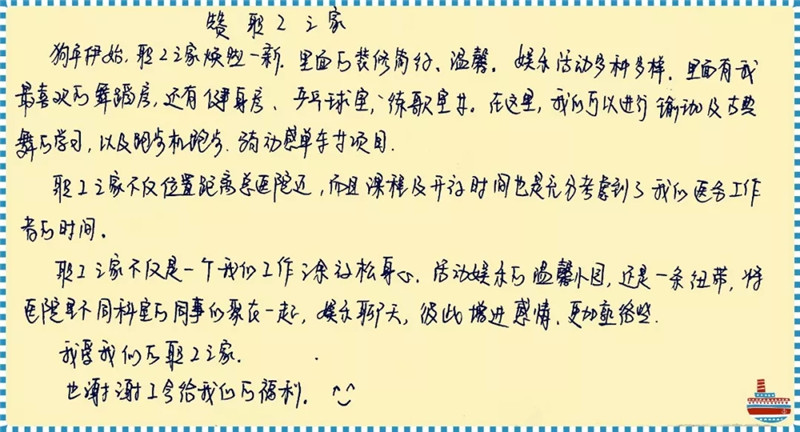 赞职工之家
狗年伊始,职工之家焕然一新.里面的装修简约、温馨。娱乐活动多种多样.里面有我
最喜欢的舞蹈房,还有健身房、乒乓球室,练歌室等.在这里,我们可以进行瑜珈及古典
舞的学习,以及跑步机跑步.骑动感单车等项目.
职工之家不仅位置距离总医院近,而且课程及开设时间也是充分考虑到了我们医务工作
者的时间。
职工之家不仅是一个我们工作之余放松身心.活动娱乐的温馨小园,还是一条纽带,将
医院里不同科室的同事们聚在一起,娱乐聊天,彼此增进感情.更加团结些.
我爱我们的职工之家.
也谢谢工会给我们的福利.